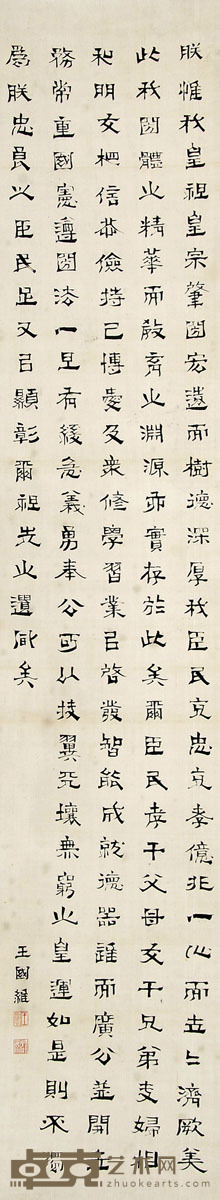 朕惟我皇祖皇宗肇國宏遠而樹德深厚我臣民克忠克孝億兆一心而世々濟厥美
此我國體之精華而教育之淵源亦實存於此矣爾臣民孝于父母友于兄弟夫婦相
和朋友相信恭儉持己博愛及眾修學習業以啓發智能成就德器進而廣公益開世
務常重國憲遵國法一旦有緩急義勇奉公可以扶翼天壤無窮之皇運如是則不獨
為朕忠良之臣民足又以顯彰爾祖先之遺風矣
王國維
卓克艺术网
zhuokearts.com